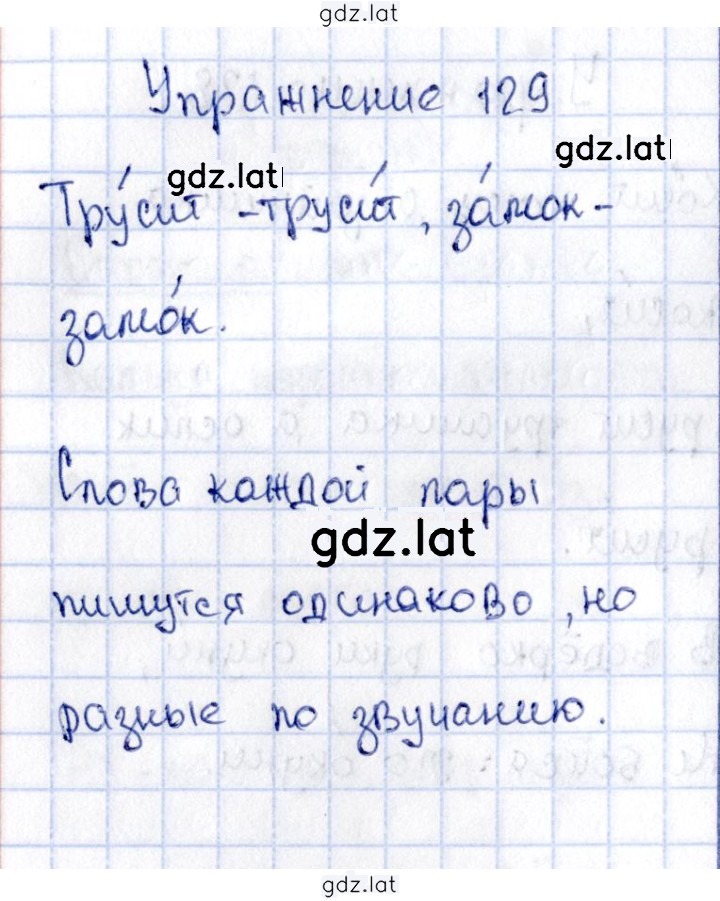 gdz.lat
Упражнение 129
gdz.lat
gdz.lat
Тру́сит - труси́т, за́мок -
замо́к.
Слова каждой пары
gdz.lat
пишутся одинаково, но
разные по звучанию.
gdz.lat